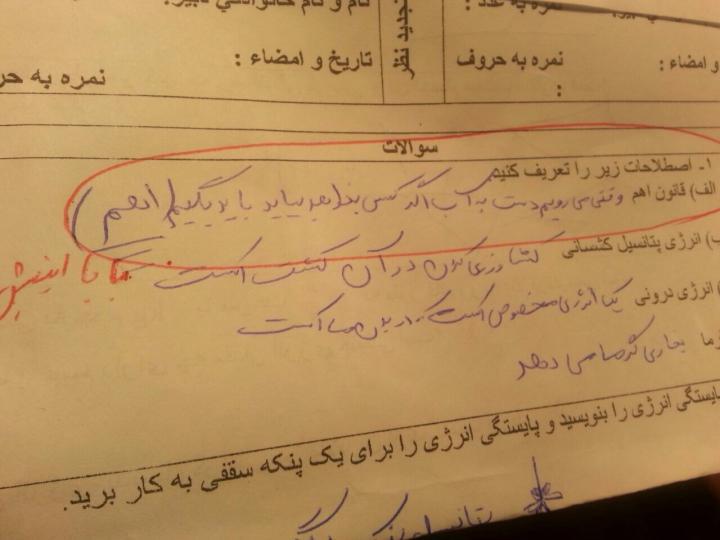 نمره به عدد :
نام و نام خانوادگی دبیر:
و امضاء :
نمره به حروف :
تجدید نظر
تاریخ و امضاء :
نمره به حر
سوالات
۱- اصطلاحات زیر را تعریف کنید
الف) قانون اهم وقتی می رویم دست به آب اگر کسی بخواهد بیاید باید بگیم (اهم)
ب) انرژی پتانسیل کشسانی کشاورزی کردن در آن کشت است
بابا اینیش
) انرژی درونی یک انرژی مخصوص است که درون ما است
رما بخاری گرما می دهد
پایستگی انرژی را بنویسید و پایستگی انرژی را برای یک پنکه سقفی به کار برید.